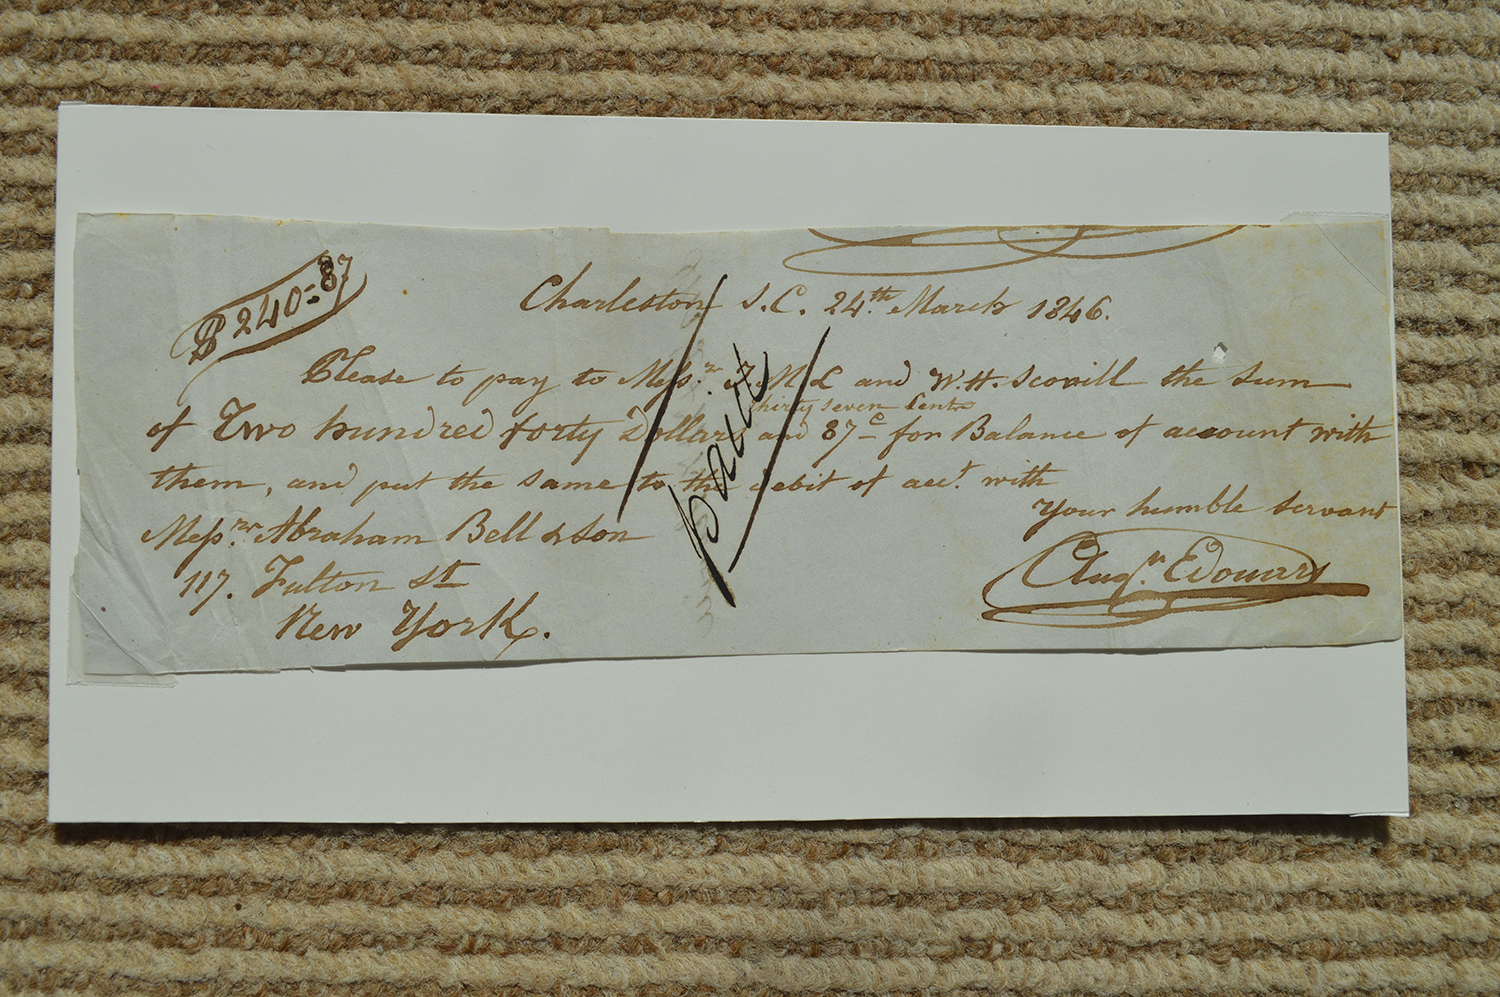 $240=87
Charleston S.C. 24th March 1846.
Please to pay to Messrs J. M L and W. H. Scovill the sum
thirty seven Cents
of Two hundred forty Dollars and 87c for Balance of account with
them, and put the same to the debit of acct. with
Your humble servant
Messrs Abraham Bell & Son
Augn Edouart
117. Fulton St
New York.